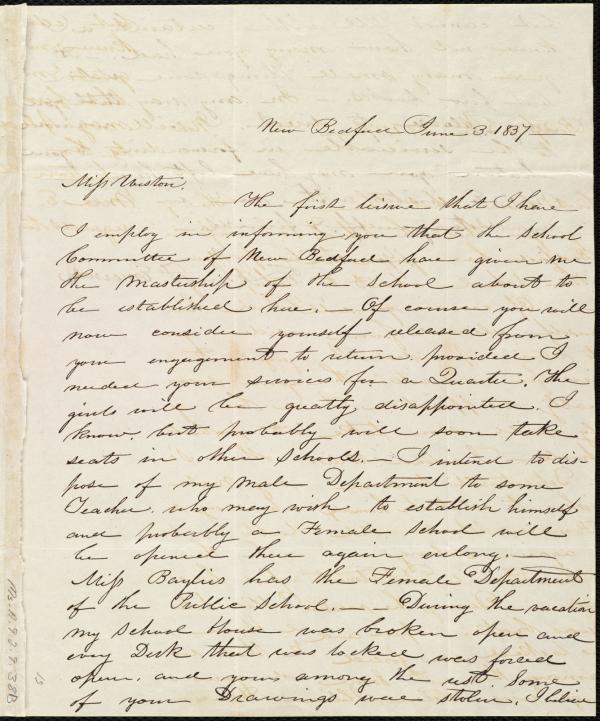 New Bedford June 3. 1837
Miss Weston,
The first leisure that I have
I employ in informing you that the School
Committee of New Bedford have given me
the Mastership of the School about to
be established here. — Of course you will
now consider yourself released from
your engagement to return, provided I
needed your services for a Quarter. The
girls will be greatly disappointed, I
know, but probably will soon take
seats in other Schools. — I intend to dis-
pose of my Male Department to some
Teacher, who may wish to establish himself
and probably a Female School will
be opened there again erelong. —
Miss Baylies has the Female Department
of the Public School. — — During the vacation
my School House was broken open and
every Desk that was locked was forced
open, and yours among the rest. Some
of your Drawings were stolen, I believe
Ms. A. 9.2. 9. 38B
13